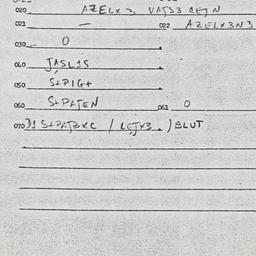 020 AZELX3 VATS3 ƏEJN
021 — 022 AZELX3N3
030 O
040 JASL1S
050 S+PIG+
060 S+PATEN 061 O
070 D1 S+PATBXC / LEJX3. ) BLUT